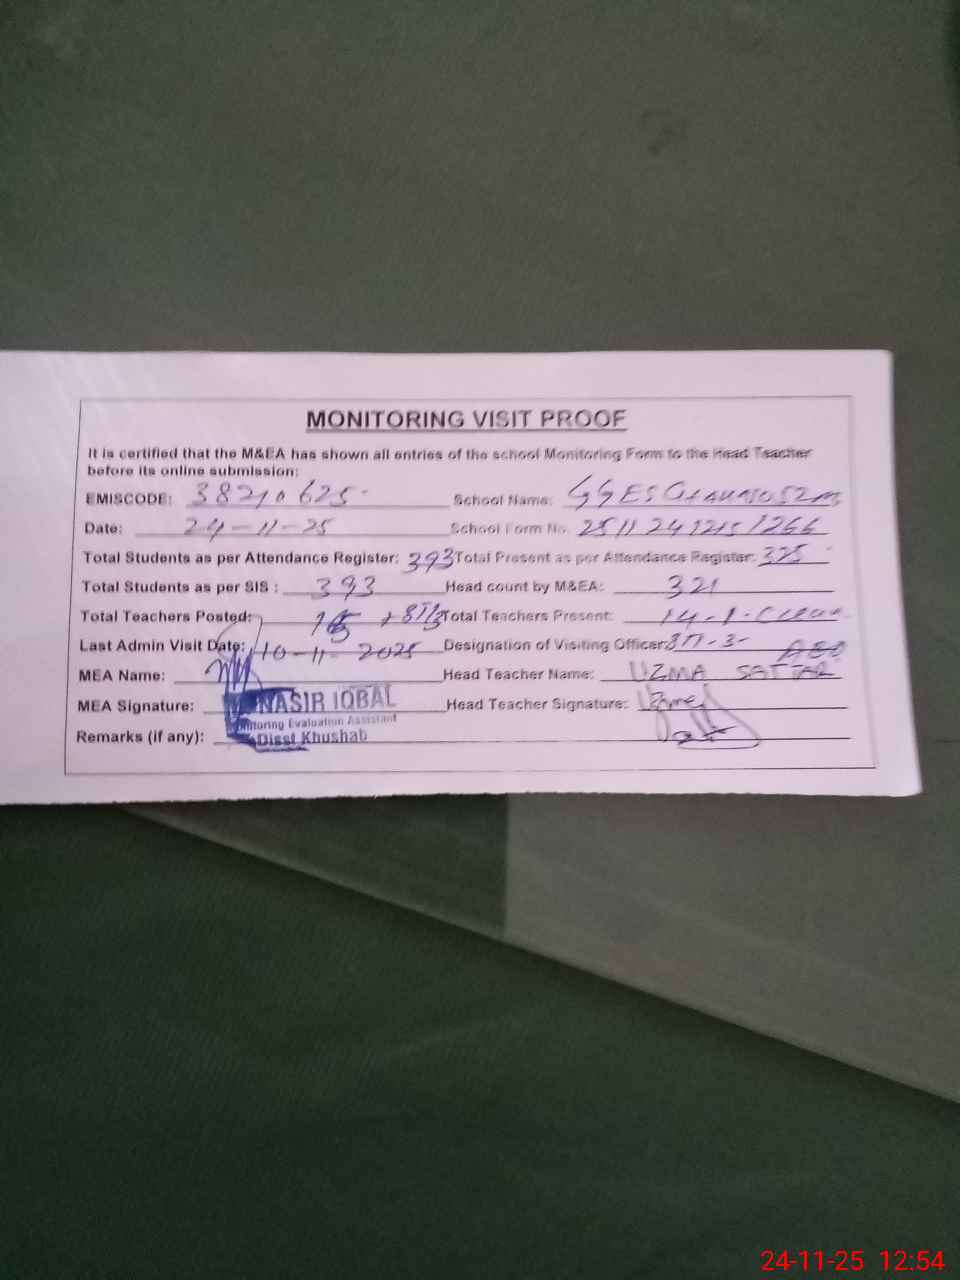 MONITORING VISIT PROOF
It is certified that the M&EA has shown all entries of the school Monitoring Form to the Head Teacher
before its online submission:
EMISCODE: 38210625 School Name: GGES
Date: 24-11-25 School Form No. 25112412151266
Total Students as per Attendance Register: 393 Total Present as per Attendance Register: 325
Total Students as per SIS : 393 Head count by M&EA: 321
Total Teachers Posted: Total Teachers Present: 14-1-
Last Admin Visit Date: 10-11-2025 Designation of Visiting Officer: AEO
MEA Name: Head Teacher Name: UZMA SATTAR
MEA Signature: NASIR IQBAL Head Teacher Signature: Uzma
Monitoring Evaluation Assistant
Remarks (if any): Disst Khushab
24-11-25 12:54